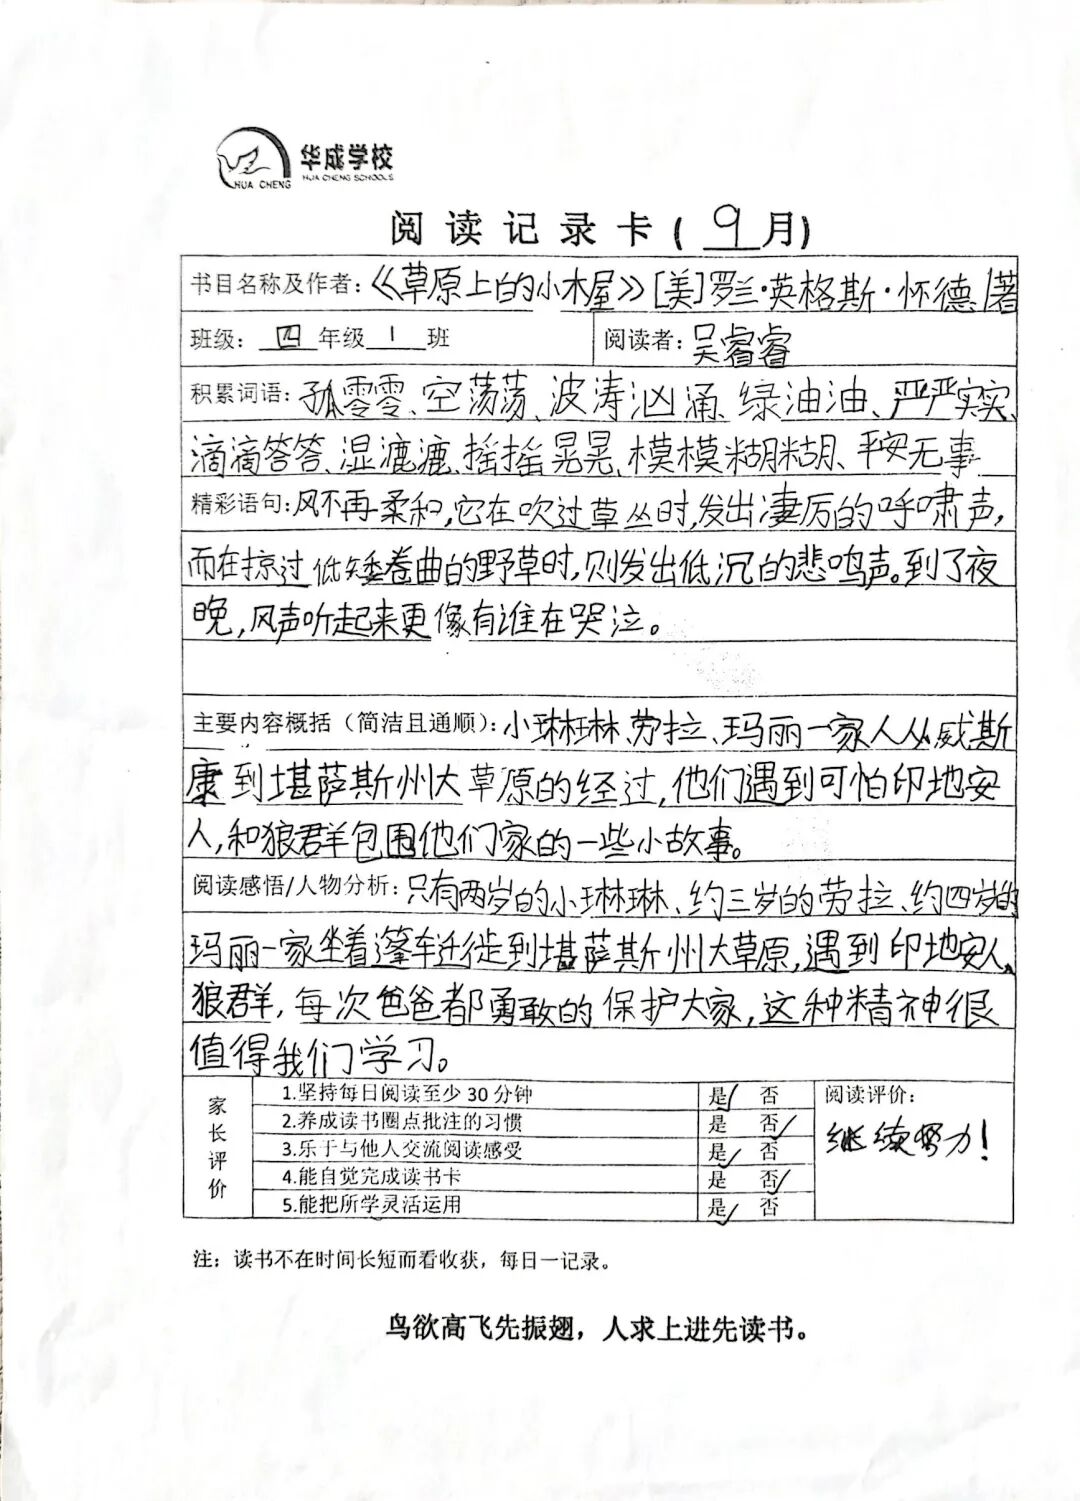 华成学校
HUA CHENG SCHOOLS
HUA CHENG
阅读记录卡(9月)
书目名称及作者:《草原上的小木屋》[美]罗兰·英格斯·怀德/著
班级:四年级1班 阅读者:吴睿睿
积累词语:孤零零、空荡荡、波涛汹涌、绿油油、严严实实、
滴滴答答、湿漉漉、摇摇晃晃、模模糊糊、平安无事
精彩语句:风不再柔和,它在吹过草丛时,发出凄厉的呼啸声,
而在掠过低矮卷曲的野草时,则发出低沉的悲鸣声。到了夜
晚,风声听起来更像有谁在哭泣。
主要内容概括(简洁且通顺):小琳琳、劳拉、玛丽一家人从威斯
康到堪萨斯州大草原的经过,他们遇到可怕印地安
人,和狼群羊包围他们家的一些小故事。
阅读感悟/人物分析:只有两岁的小琳琳、约三岁的劳拉、约四岁的
玛丽一家坐着篷车迁徙到堪萨斯州大草原,遇到印地安人、
狼群,每次爸爸都勇敢的保护大家,这种精神很
值得我们学习。
家长评价
1.坚持每日阅读至少30分钟 是√ 否
2.养成读书圈点批注的习惯 是 否√
3.乐于与他人交流阅读感受 是√ 否
4.能自觉完成读书卡 是 否√
5.能把所学灵活运用 是√ 否
阅读评价:
继续努力!
注:读书不在时间长短而看收获,每日一记录。
鸟欲高飞先振翅,人求上进先读书。